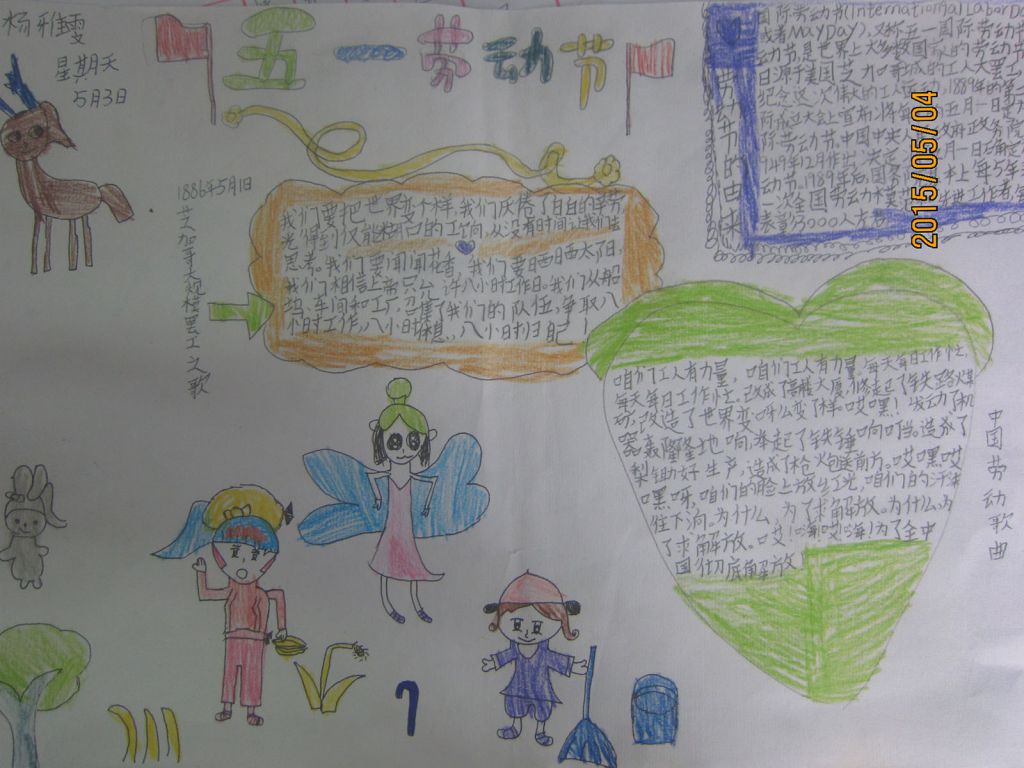 杨雅雯
星期天
5月3日
五一劳动节
国际劳动节(International Labor Da
或者May Day),又称五一国际劳动节
动节是世界上大多数国家的劳动节
日源于美国芝加哥城的工人大罢工
纪念这次伟大的工人运动,1889年的第二
际成立大会上宣布将每年的五月一日定为
际劳动节。中国中央人民政府政务院
1949年12月作出决定
动节。1989年后,国务院基本上每5年
一次全国劳动模范和先进工作者
表彰3000人左右
劳动节的由来
2015/05/04
1886年5月1日
芝加哥大规模罢工之歌
我们要把世界变个样,我们厌倦了白白的辛劳
光得到仅能糊口的工饷,从没有时间让我们去
思考。我们要闻闻花香,我们要晒晒太阳
我们相信上帝只允许八小时工作日。我们从船
坞、车间和工厂,召集了我们的队伍,争取八
小时工作,八小时休息,八小时归自己!
咱们工人有力量,咱们工人有力量,每天每日工作忙,
每天每日工作忙,盖成了高楼大厦,修起了铁路煤
矿,改造了世界变呀么变了样!哎嘿!发动了机
器轰隆隆地响,举起了铁锤响叮当。造成了
犁锄好生产,造成了枪炮送前方。哎嘿哎
嘿呀,咱们的脸上放红光,咱们的汗珠
往下淌。为什么,为了求解放。为什么,为
了求解放。哎!嗨!哎!嗨!为了全中
国彻底解放
中国劳动歌曲